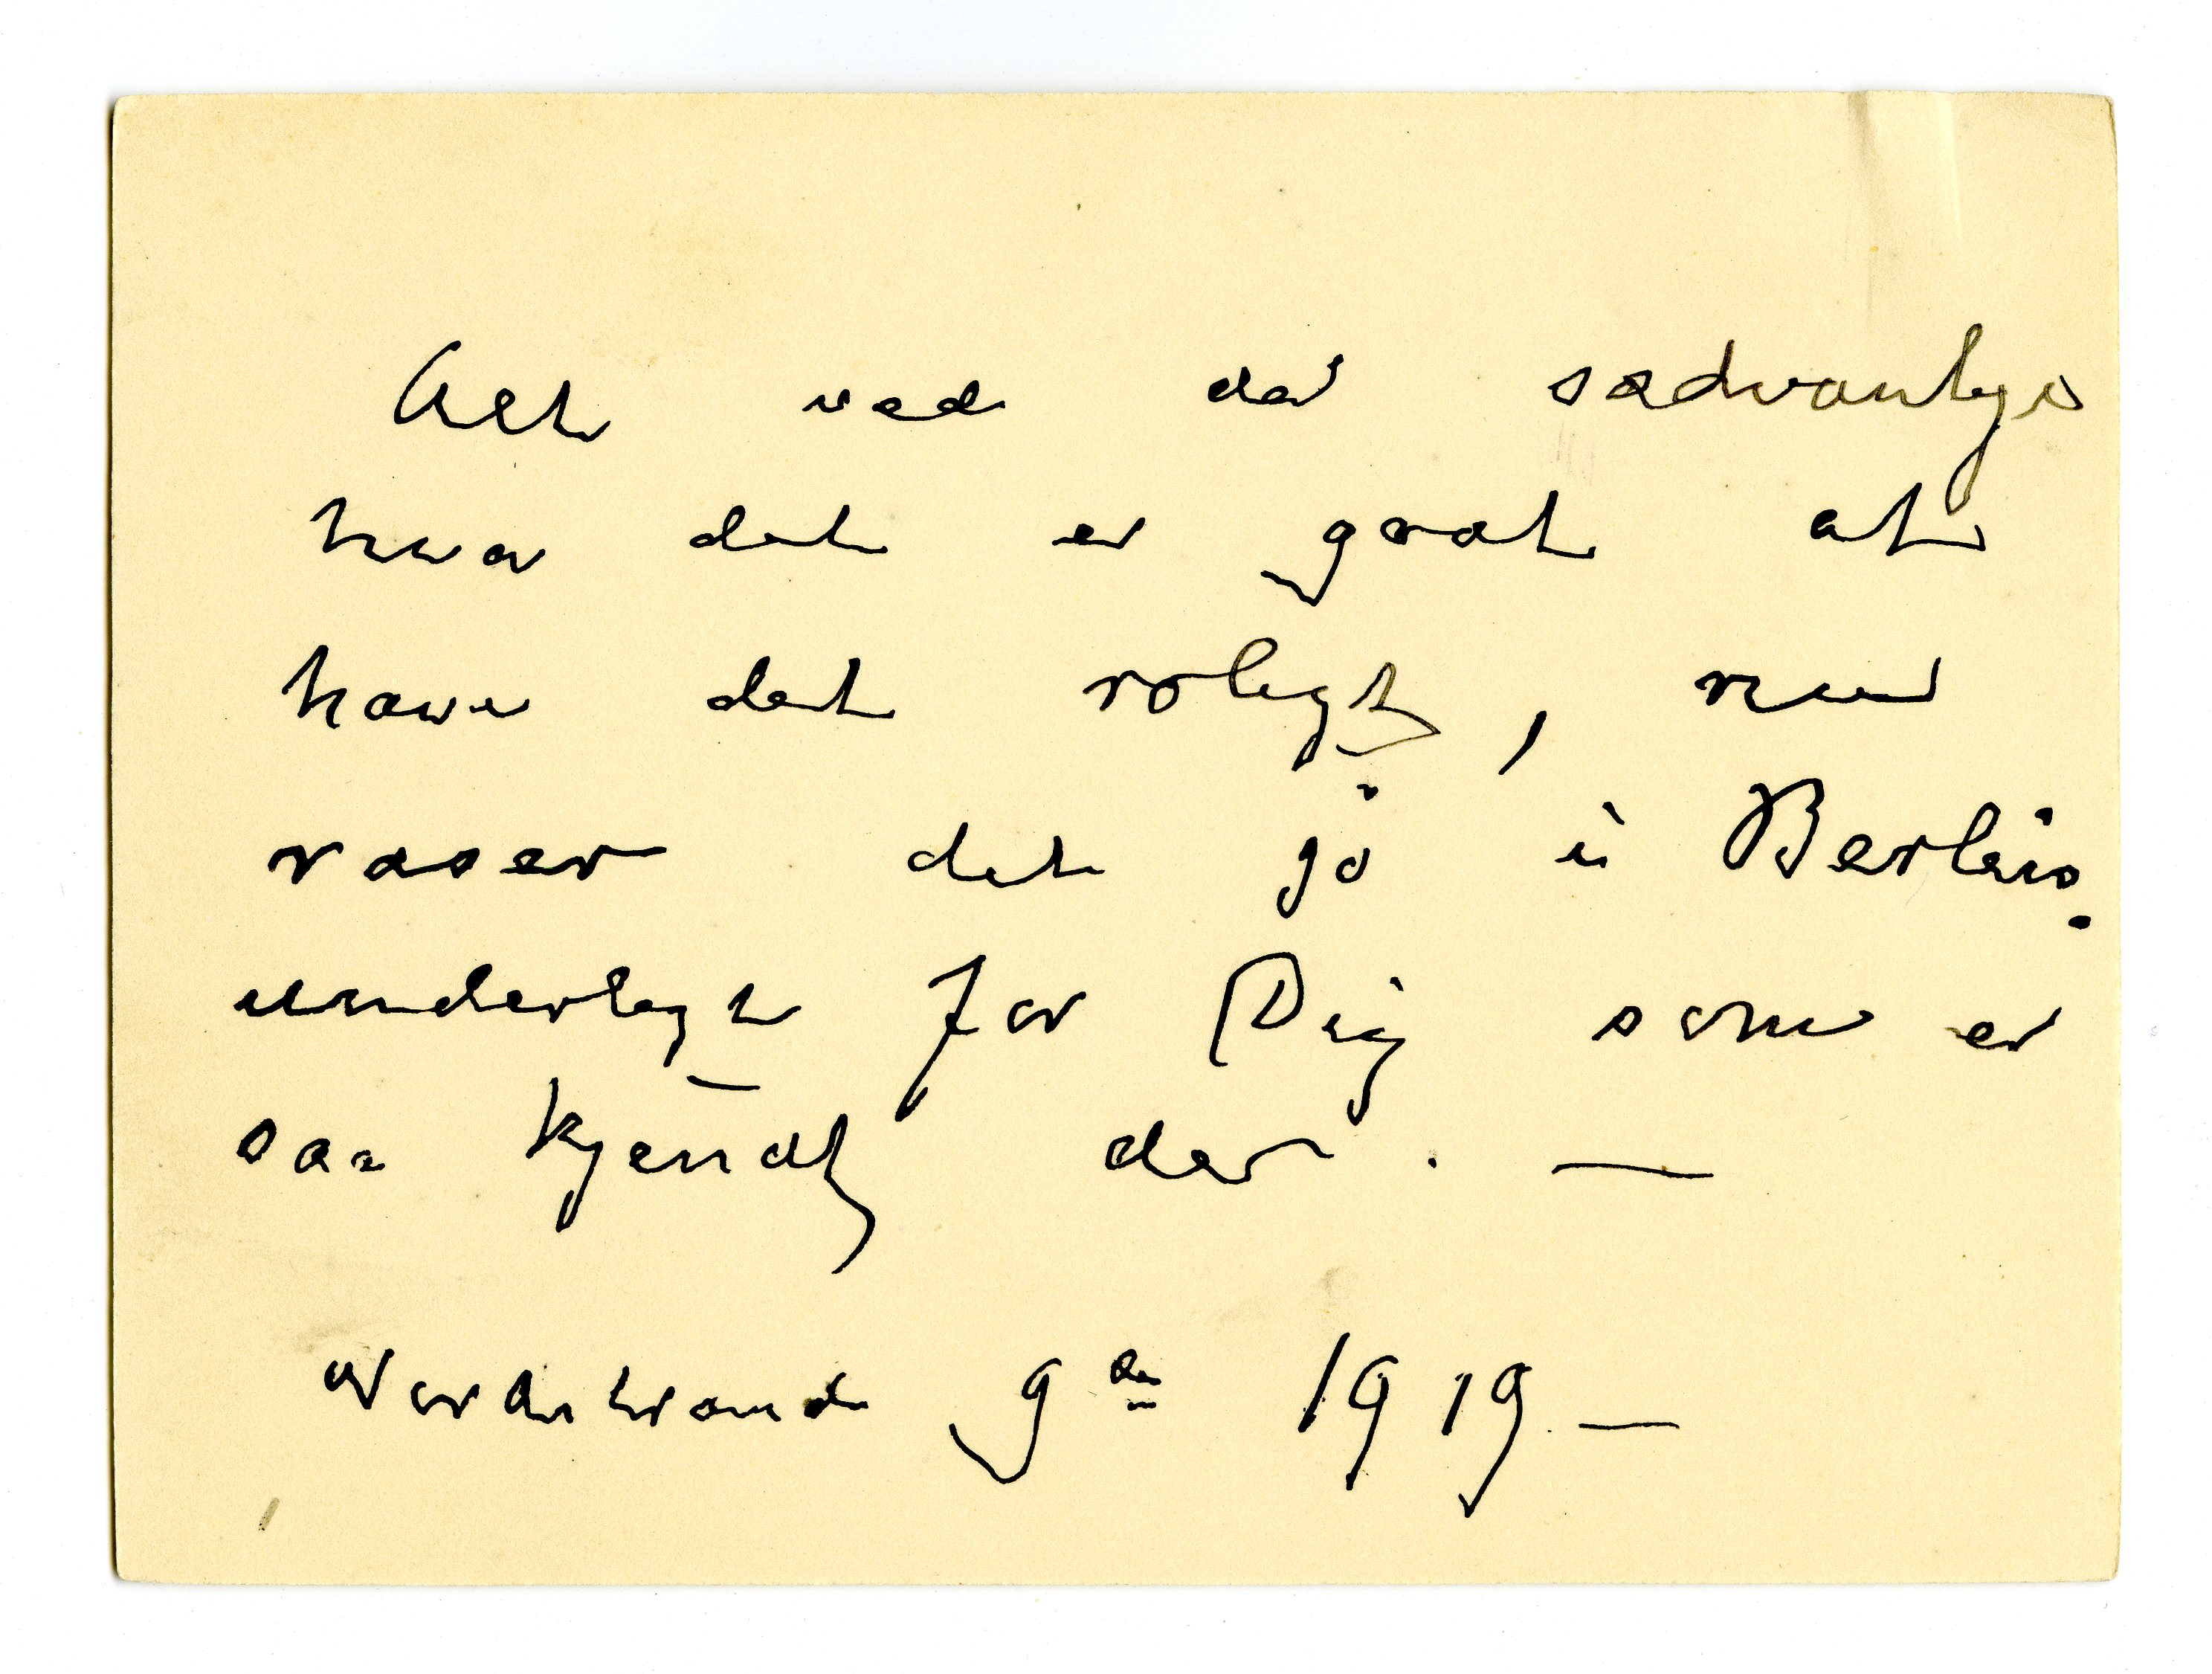 Alt ved det sædvanlige
hvor det er godt at
have det roligt, nu
raser det jo i Berlin.
underligt for Dig som er
saa kjendt der. —
Nordstrand 9de 1919 —